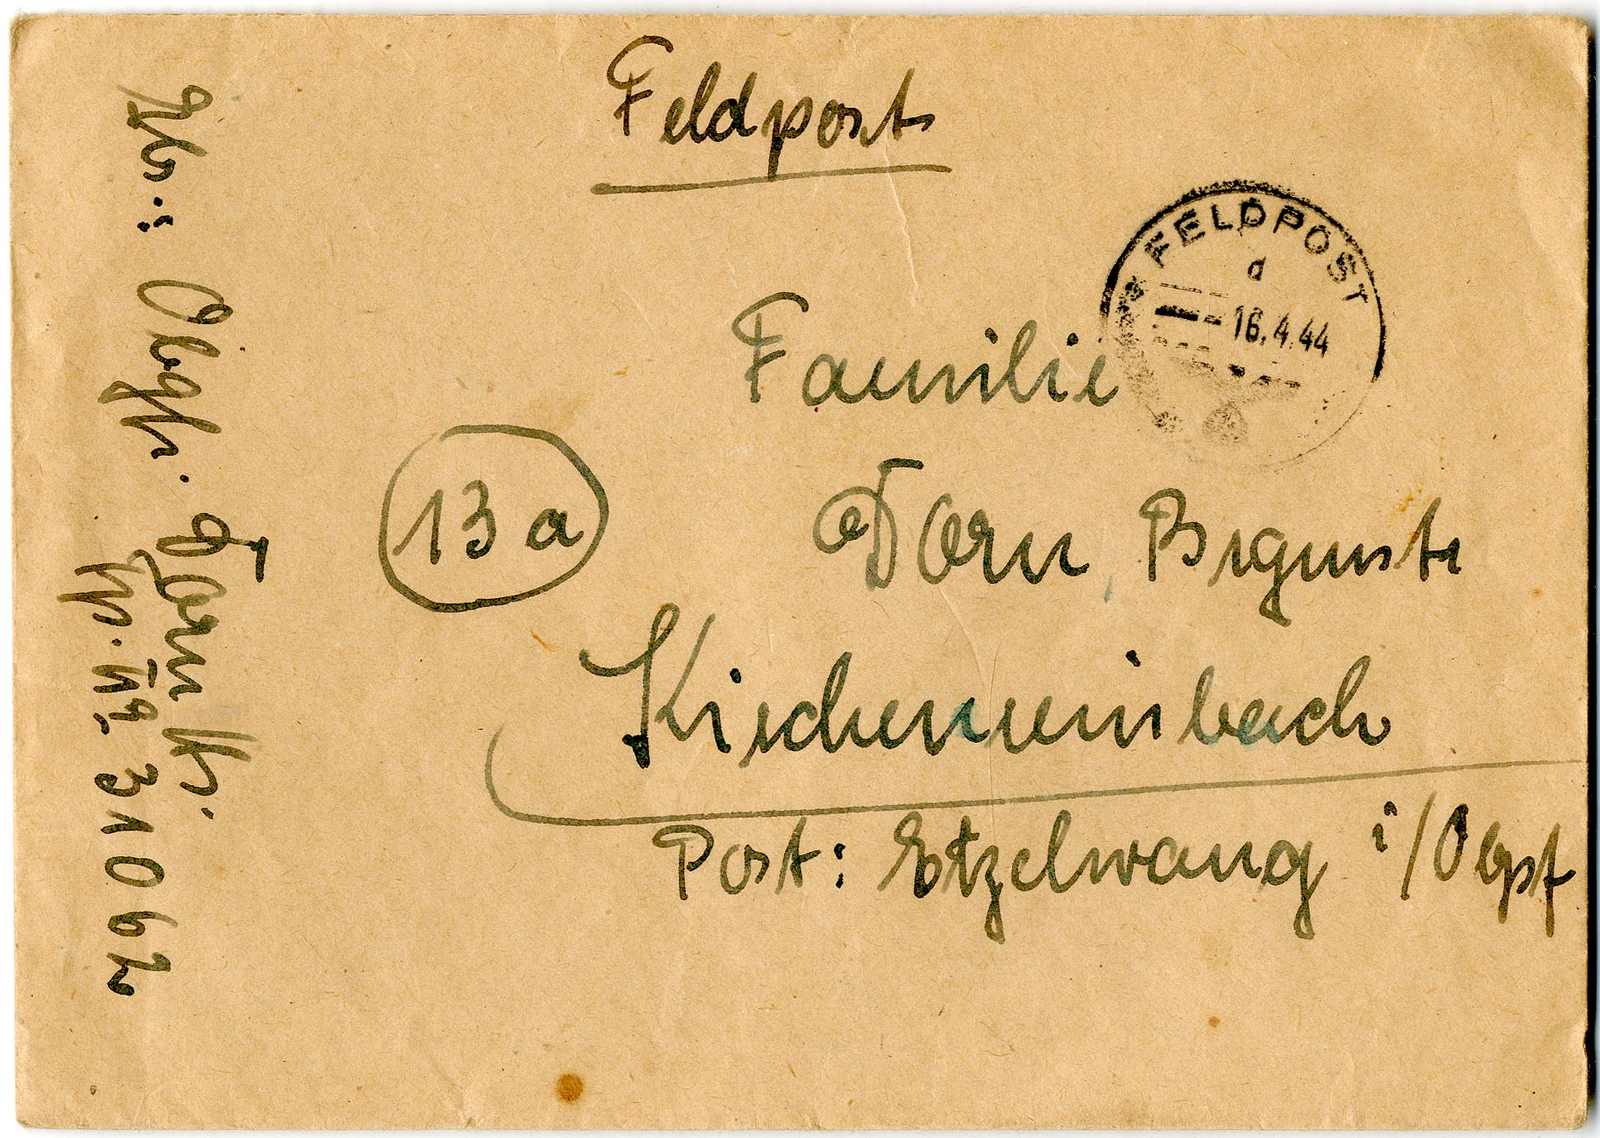 Feldpost
FELDPOST
d
16.4.44
Familie
Dorn,
13a
Kirchenreinbach
Post: Etzelwang i/Obpf
Obgfr. Dorn K.
Fp. Nr. 31062